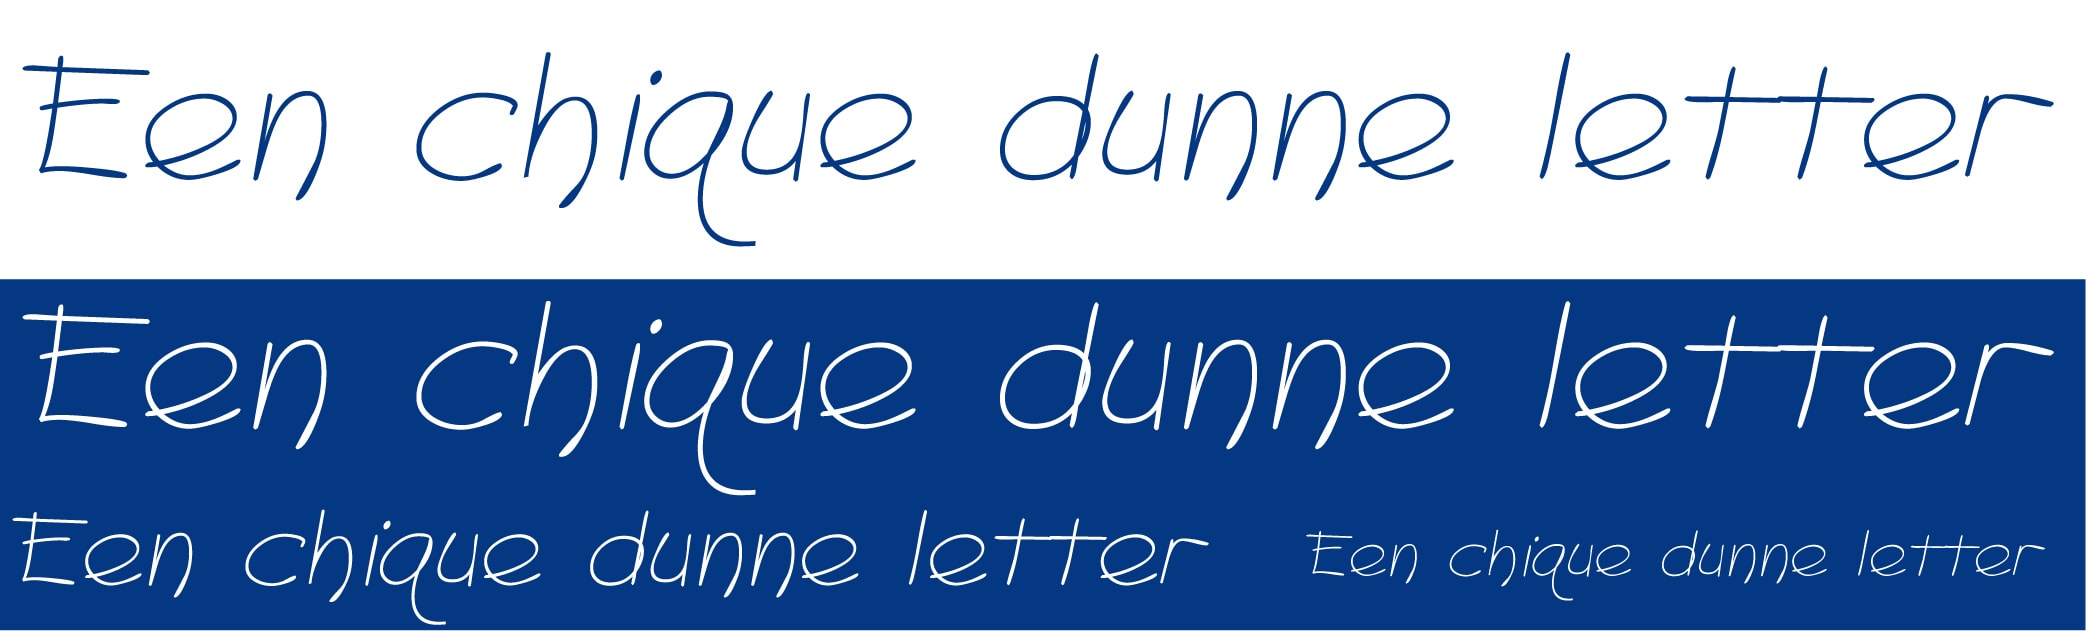 Een chique dunne letter
Een chique dunne letter
Een chique dunne letter
Een chique dunne letter